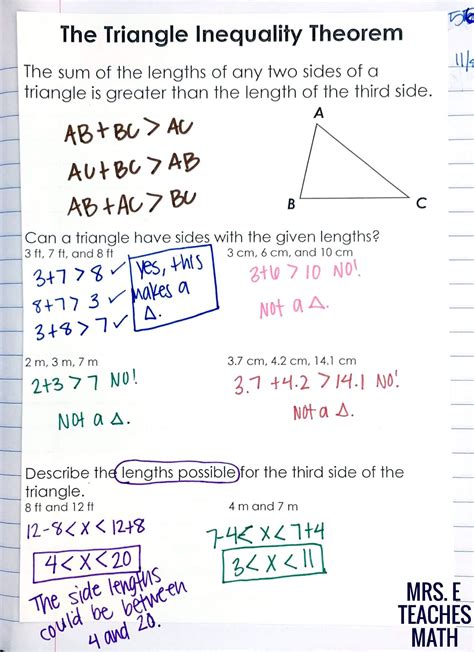 56
The Triangle Inequality Theorem
11/
The sum of the lengths of any two sides of a
triangle is greater than the length of the third side.
AB+BC > AC
AC+BC > AB
AB+AC > BC
A
B
C
Can a triangle have sides with the given lengths?
3 ft, 7 ft, and 8 ft
3+7 > 8 ✓
8+7 > 3 ✓
3+8 > 7 ✓
yes, this
makes a
Δ.
3 cm, 6 cm, and 10 cm
3+6 > 10 NO!
Not a Δ.
2 m, 3 m, 7 m
2+3 > 7 NO!
Not a Δ.
3.7 cm, 4.2 cm, 14.1 cm
3.7+4.2 > 14.1 NO!
Not a Δ.
Describe the lengths possible for the third side of the
triangle.
8 ft and 12 ft
12-8 < x < 12+8
4 < x < 20
The side lengths
could be between
4 and 20.
4 m and 7 m
7-4 < x < 7+4
3 < x < 11
MRS. E
TEACHES
MATH